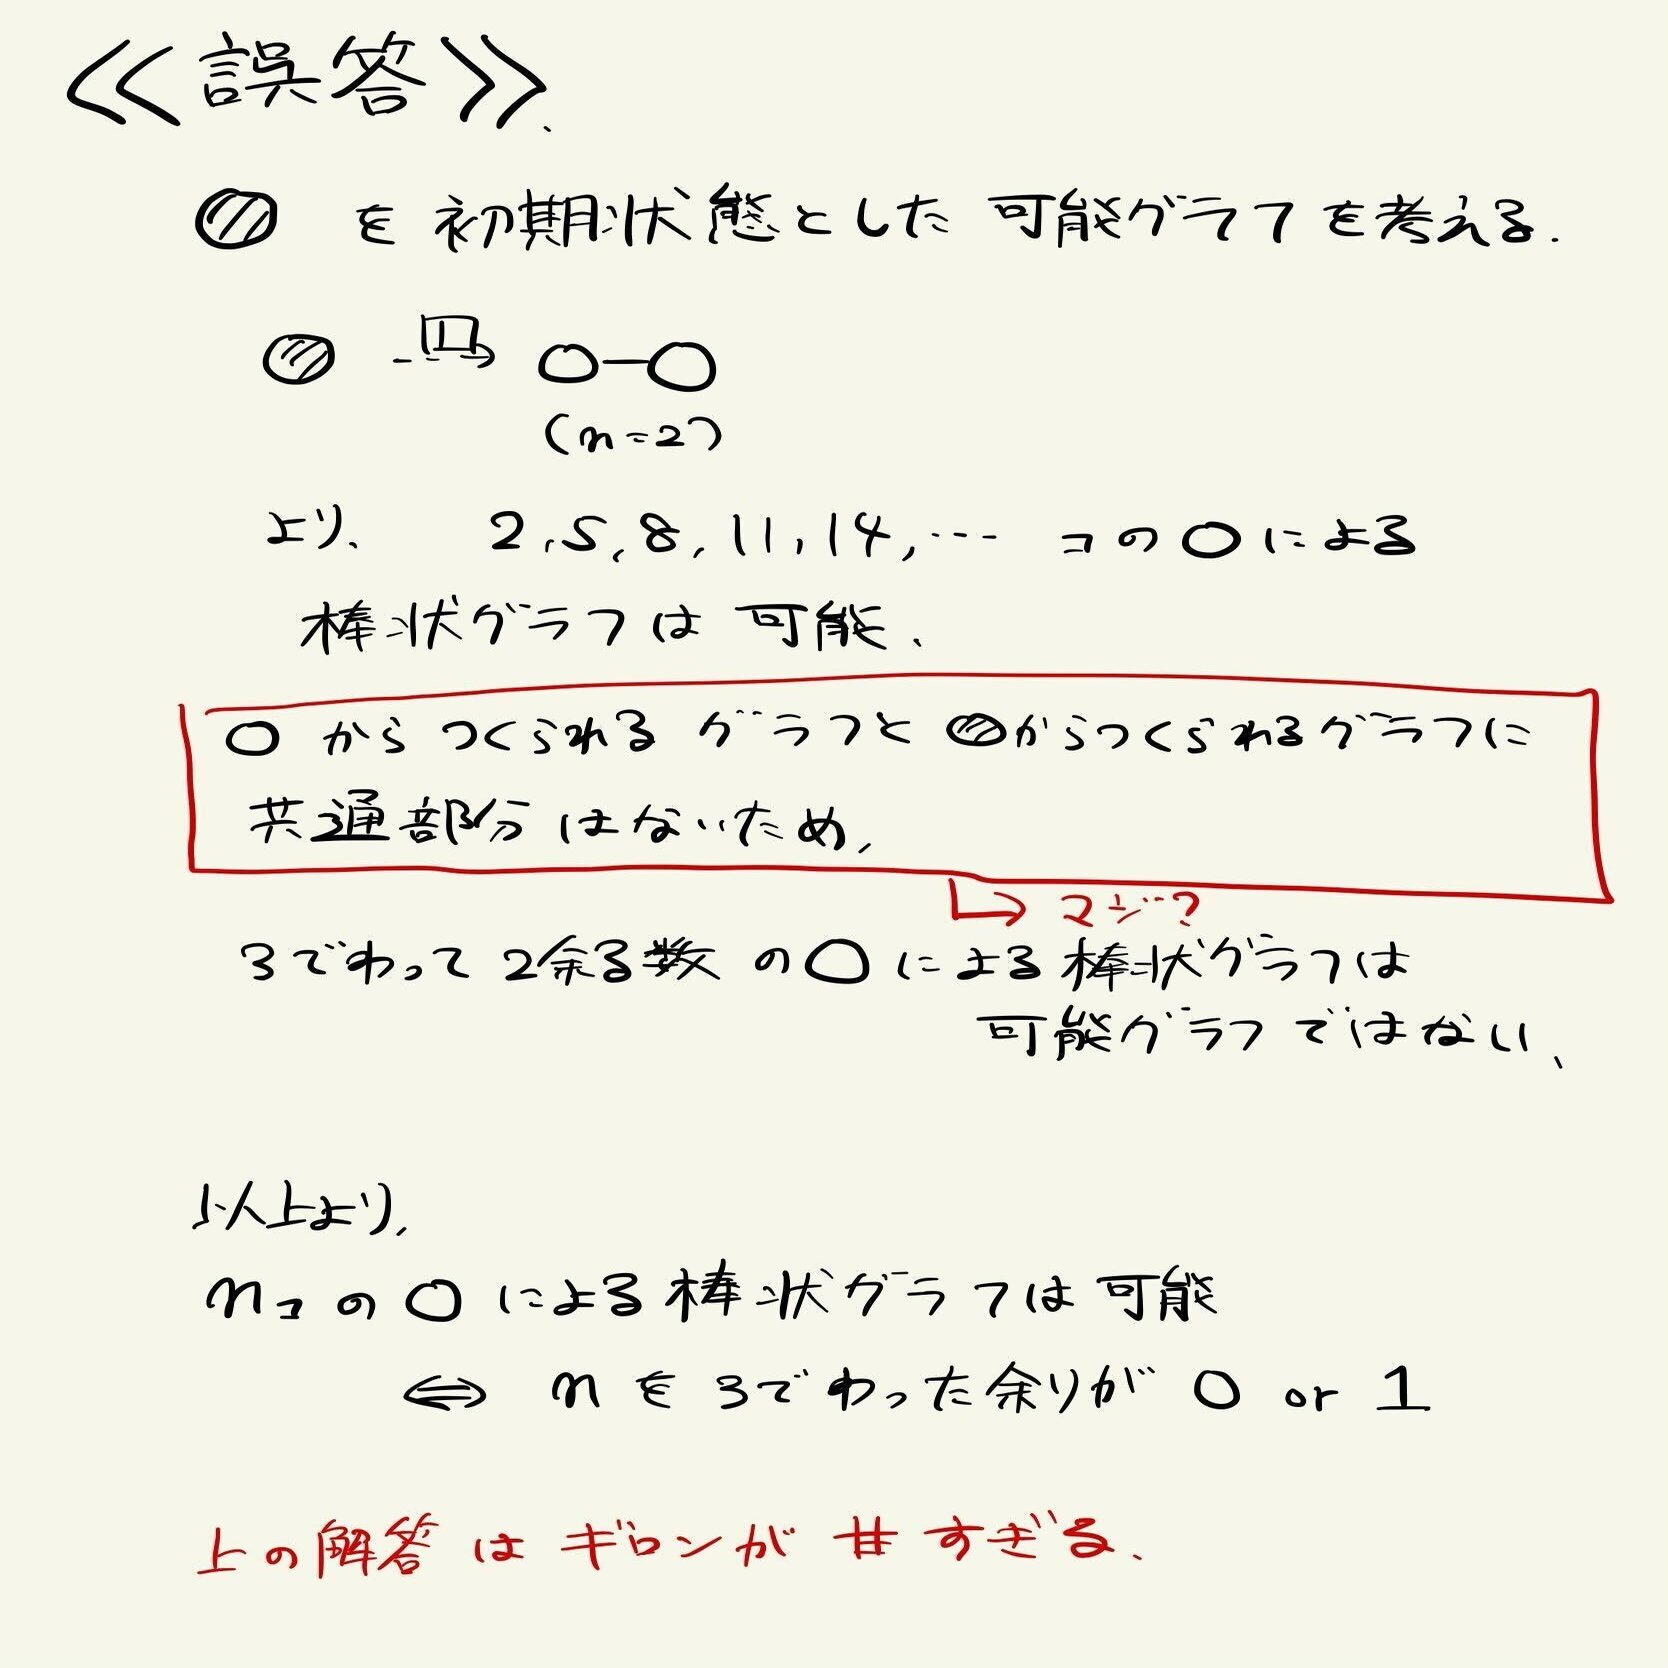 ≪誤答≫.
◍を初期状態とした可能グラフを考える.
◍ --II→ ○─○
(n=2)
より、 2,5,8,11,14,… コの○による
棒状グラフは可能.
○からつくられるグラフと◍からつくられるグラフに
共通部分はないため,
↳ マジ?
3でわって2余る数の○による棒状グラフは
可能グラフではない、
以上より,
nコの○による棒状グラフは可能
⇔ nを3でわった余りが 0 or 1
上の解答はギロンが甘すぎる.